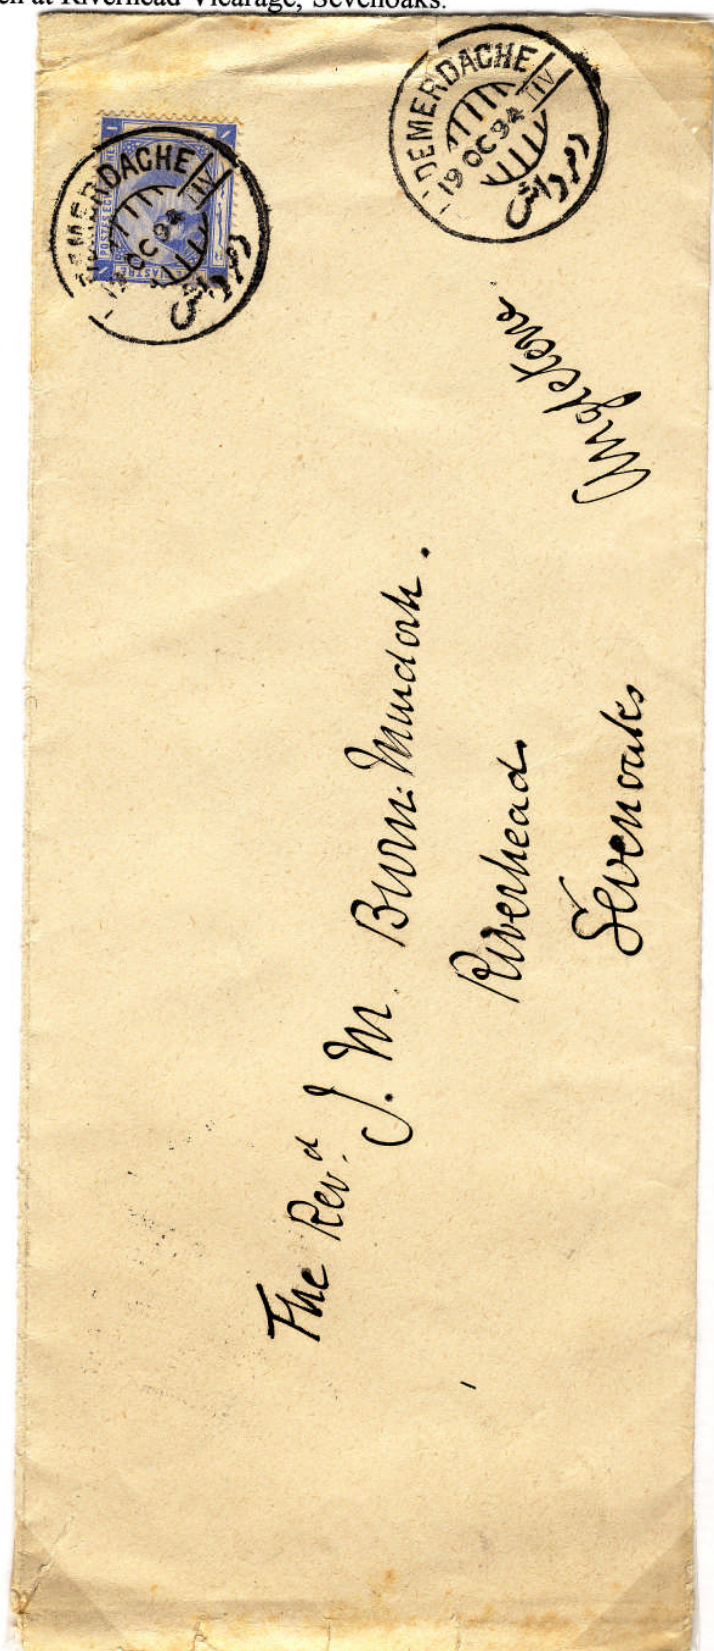 en at Riverhead Vicarage, Sevenoaks.
DEMERDACHE
VII
19 OC 94
دمرداش
DEMERDACHE
VII
19 OC 94
دمرداش
POSTES
1
1
The Revd. J. M. Burn-Murdoch.
Riverhead
Sevenoaks
Angleterre